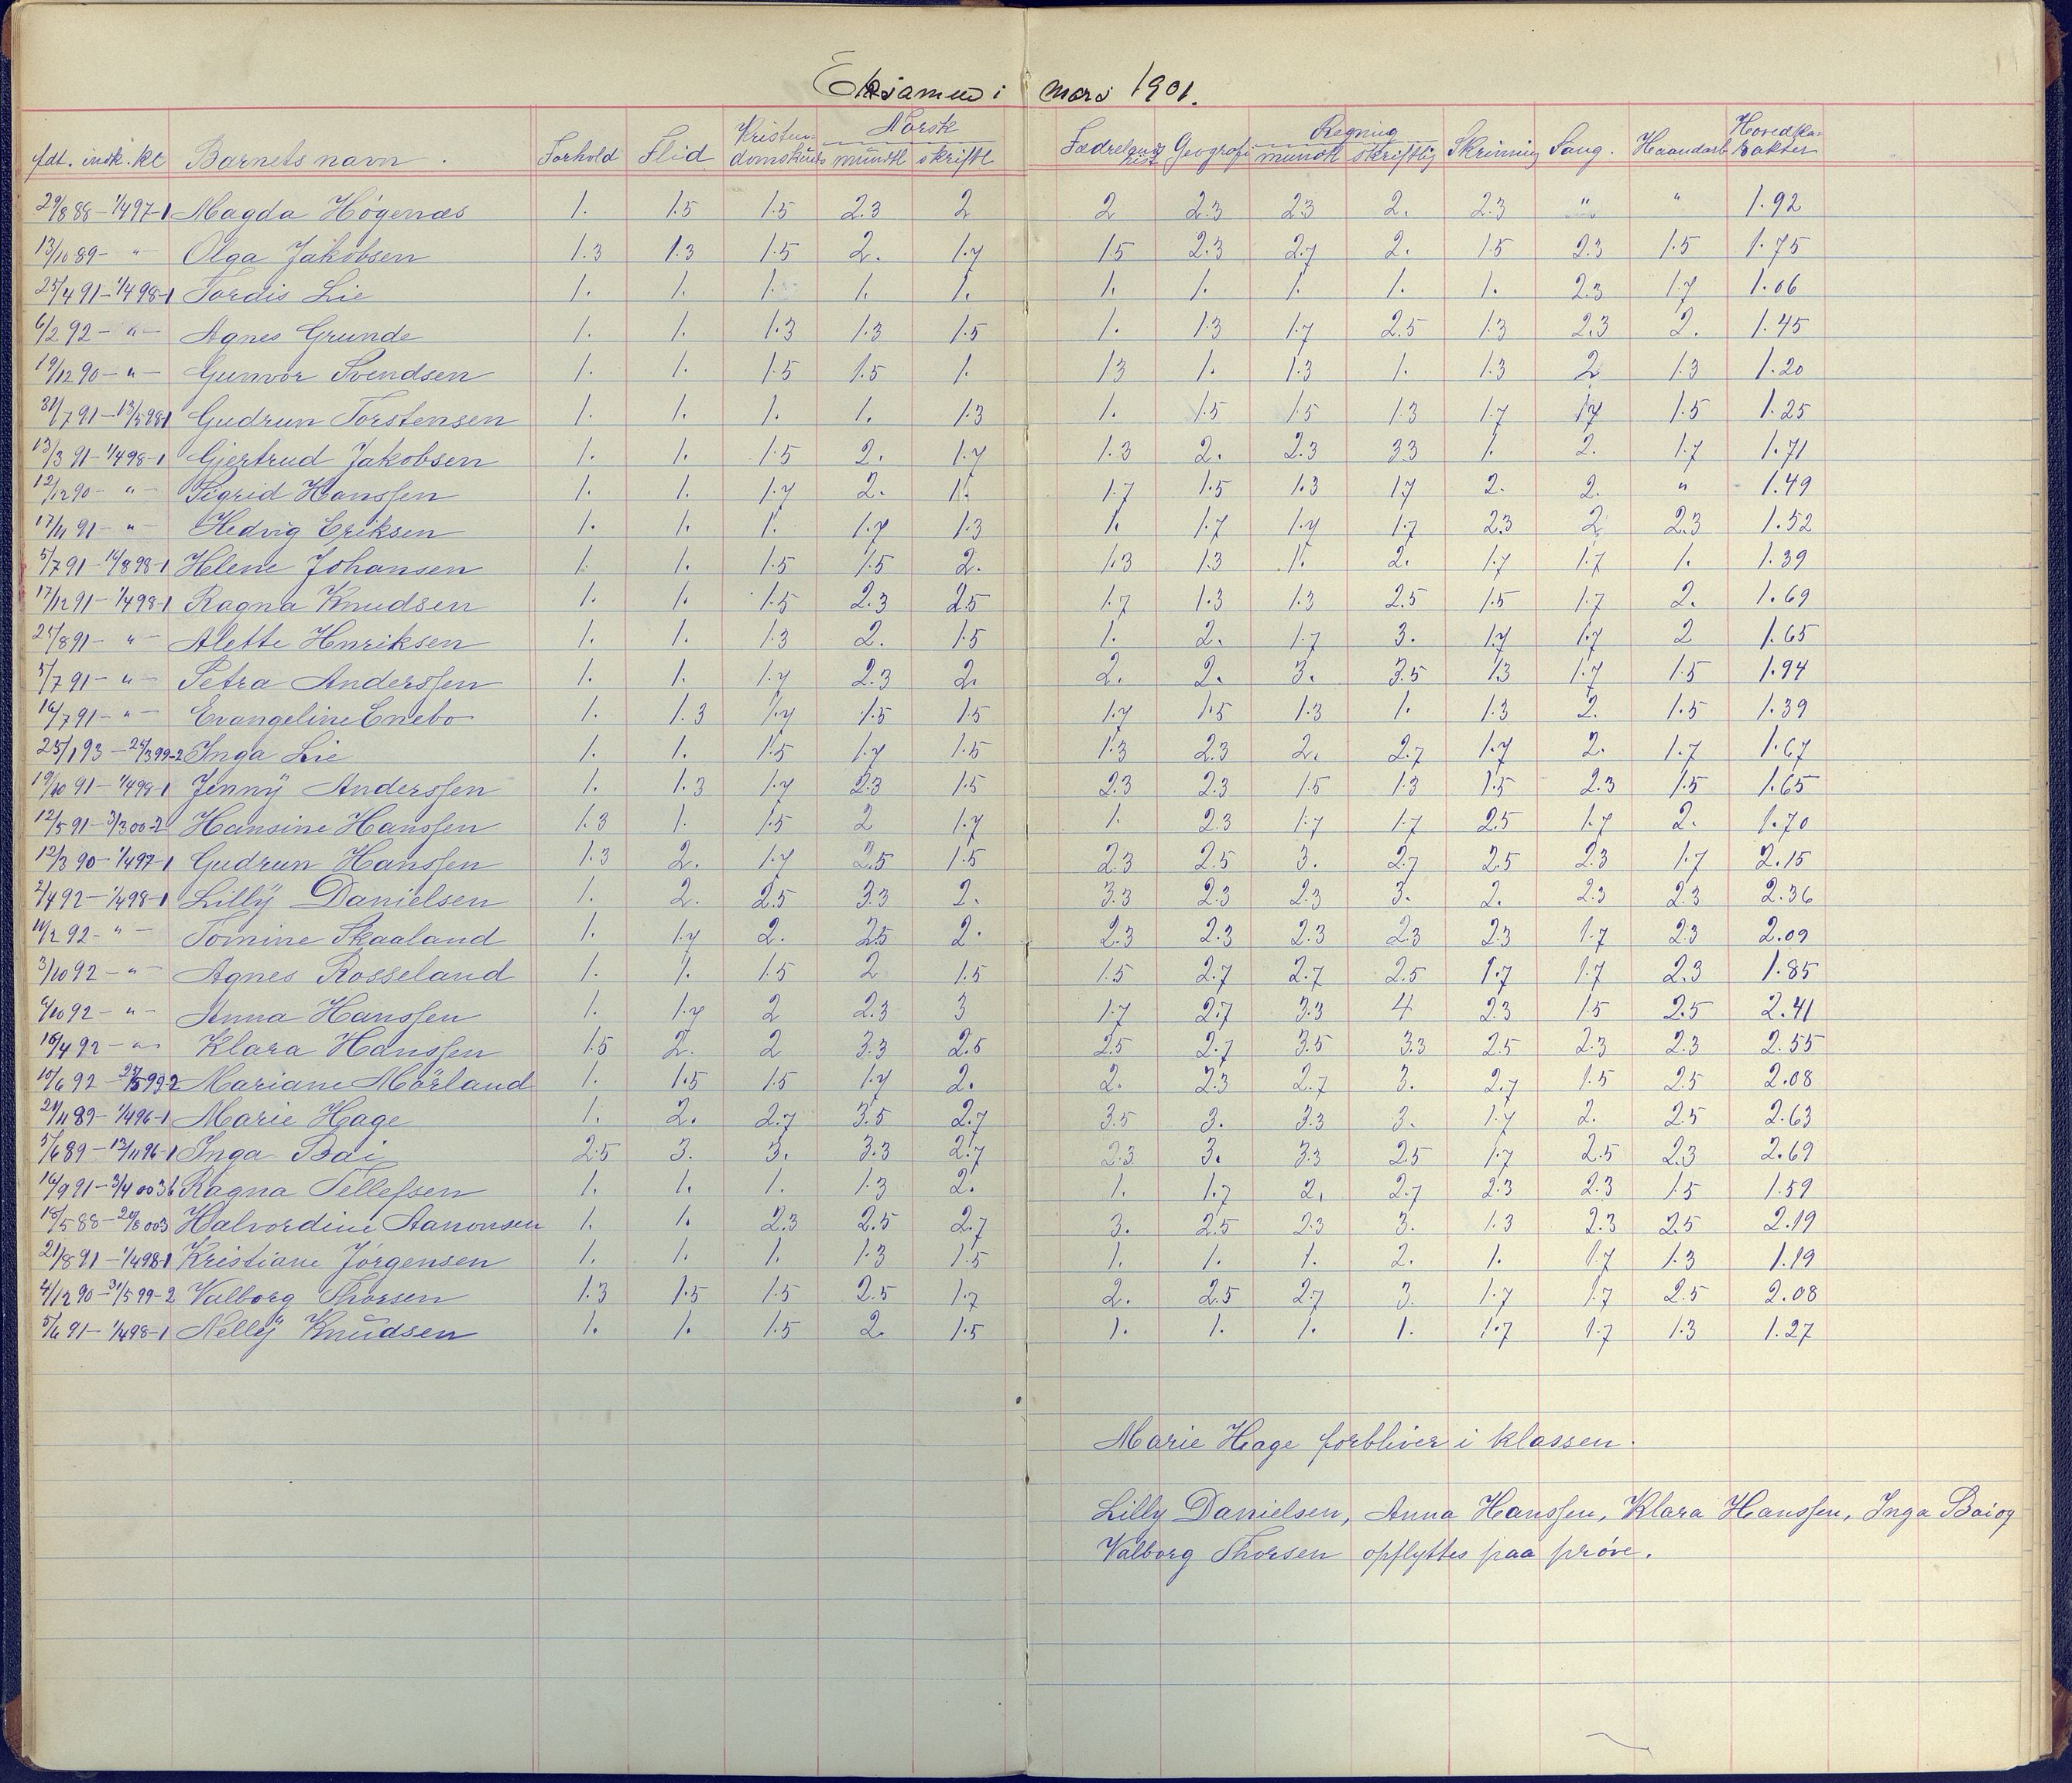 Eksamen i mars 1901.
Norsk Regning
fdt. indk. kl Barnets navn. Forhold Flid Kristendomskunds mundtl skriftl Fædrelandshist Geografi mundtl skriftlig Skrivning Sang. Haandarb Hovedkarakter
29/8 88 - 1/4 97-1 Magda Högenæs 1. 1.5 1.5 2.3 2 2 2.3 2.3 2. 2.3 " " 1.92
13/10 89 - " Olga Jakobsen 1.3 1.3 1.5 2. 1.7 1.5 2.3 2.7 2. 1.5 2.3 1.5 1.75
25/4 91 - 1/4 98-1 Tordis Lie 1. 1. 1. 1. 1. 1. 1. 1. 1. 1. 2.3 1.7 1.06
6/2 92 - " - Agnes Grunde 1. 1. 1.3 1.3 1.5 1. 1.3 1.7 2.5 1.3 2.3 2. 1.45
19/12 90 - " - Gunvor Svendsen 1. 1. 1.5 1.5 1. 1.3 1. 1.3 1. 1.3 2 1.3 1.20
31/7 91 - 13/5 98-1 Gudrun Torstensen 1. 1. 1. 1. 1.3 1. 1.5 1.5 1.3 1.7 1.7 1.5 1.25
13/3 91 - 1/4 98-1 Gjertrud Jakobsen 1. 1. 1.5 2. 1.7 1.3 2. 2.3 3.3 1. 2. 1.7 1.71
12/12 90 - " - Sigrid Hanssen 1. 1. 1.7 2. 1. 1.7 1.5 1.3 1.7 2. 2. " 1.49
17/11 91 - " - Hedvig Eriksen 1. 1. 1. 1.7 1.3 1. 1.7 1.7 1.7 2.3 2 2.3 1.52
5/7 91 - 16/8 98-1 Helene Johansen 1. 1. 1.5 1.5 2. 1.3 1.3 1. 2. 1.7 1.7 1. 1.39
17/12 91 - 1/4 98-1 Ragna Knudsen 1. 1. 1.5 2.3 2.5 1.7 1.3 1.3 2.5 1.5 1.7 2. 1.69
25/8 91 - " - Alette Hnriksen 1. 1. 1.3 2. 1.5 1. 2. 1.7 3. 1.7 1.7 2 1.65
5/7 91 - " - Petra Anderssen 1. 1. 1.7 2.3 2. 2. 2. 3. 3.5 1.3 1.7 1.5 1.94
16/7 91 - " - Evangeline Enebo 1. 1.3 1.7 1.5 1.5 1.7 1.5 1.3 1. 1.3 2. 1.5 1.39
25/1 93 - 25/3 99-2 Inga Lie 1. 1. 1.5 1.7 1.5 1.3 2.3 2. 2.7 1.7 2. 1.7 1.67
19/10 91 - 1/4 98-1 Jenny Anderssen 1. 1.3 1.7 2.3 1.5 2.3 2.3 1.5 1.3 1.5 2.3 1.5 1.65
12/5 91 - 3/3 00-2 Hansine Hanssen 1.3 1. 1.5 2 1.7 1. 2.3 1.7 1.7 2.5 1.7 2. 1.70
12/3 90 - 1/4 97-1 Gudrun Hanssen 1.3 2. 1.7 2.5 1.5 2.3 2.5 3. 2.7 2.5 2.3 1.7 2.15
2/4 92 - 1/4 98-1 Lilly Danielsen 1. 2. 2.5 3.3 2. 3.3 2.3 2.3 3. 2. 2.3 2.3 2.36
11/2 92 - " - Tomine Skaaland 1. 1.7 2. 2.5 2. 2.3 2.3 2.3 2.3 2.3 1.7 2.3 2.09
3/10 92 - " - Agnes Rosseland 1. 1. 1.5 2 1.5 1.5 2.7 2.7 2.5 1.7 1.7 2.3 1.85
6/10 92 - " - Anna Hanssen 1. 1.7 2 2.3 3 1.7 2.7 3.3 4 2.3 1.5 2.5 2.41
16/4 92 - " Klara Hanssen 1.5 2. 2 3.3 2.5 2.5 2.7 3.5 3.3 2.5 2.3 2.3 2.55
10/6 92 - 27/5 99-2 Mariane Mörland 1. 1.5 1.5 1.7 2. 2. 2.3 2.7 3. 2.7 1.5 2.5 2.08
21/11 89 - 1/4 96-1 Marie Hage 1. 2. 2.7 3.5 2.7 3.5 3. 3.3 3. 1.7 2. 2.5 2.63
5/6 89 - 13/11 96-1 Inga Bai 2.5 3. 3. 3.3 2.7 2.3 3. 3.3 2.5 1.7 2.5 2.3 2.69
16/9 91 - 3/4 00 3b Ragna Tellefsen 1. 1. 1. 1.3 2. 1. 1.7 2. 2.7 2.3 2.3 1.5 1.59
18/5 88 - 20/8 00 3 Halvordine Aanonsen 1. 1. 2.3 2.5 2.7 3. 2.5 2.3 3. 1.3 2.3 2.5 2.19
21/8 91 - 1/4 98-1 Kristiane Jörgensen 1. 1. 1. 1.3 1.5 1. 1. 1. 2. 1. 1.7 1.3 1.19
4/12 90 - 31/5 99-2 Valborg Thorsen 1.3 1.5 1.5 2.5 1.7 2. 2.5 2.7 3. 1.7 1.7 2.5 2.08
5/6 91 - 1/4 98-1 Nelly Knudsen 1. 1. 1.5 2. 1.5 1. 1. 1. 1. 1.7 1.7 1.3 1.27
Marie Hage forbliver i klassen.
Lilly Danielsen, Anna Hanssen, Klara Hanssen, Inga Bai og
Valborg Thorsen opflyttes paa pröve.